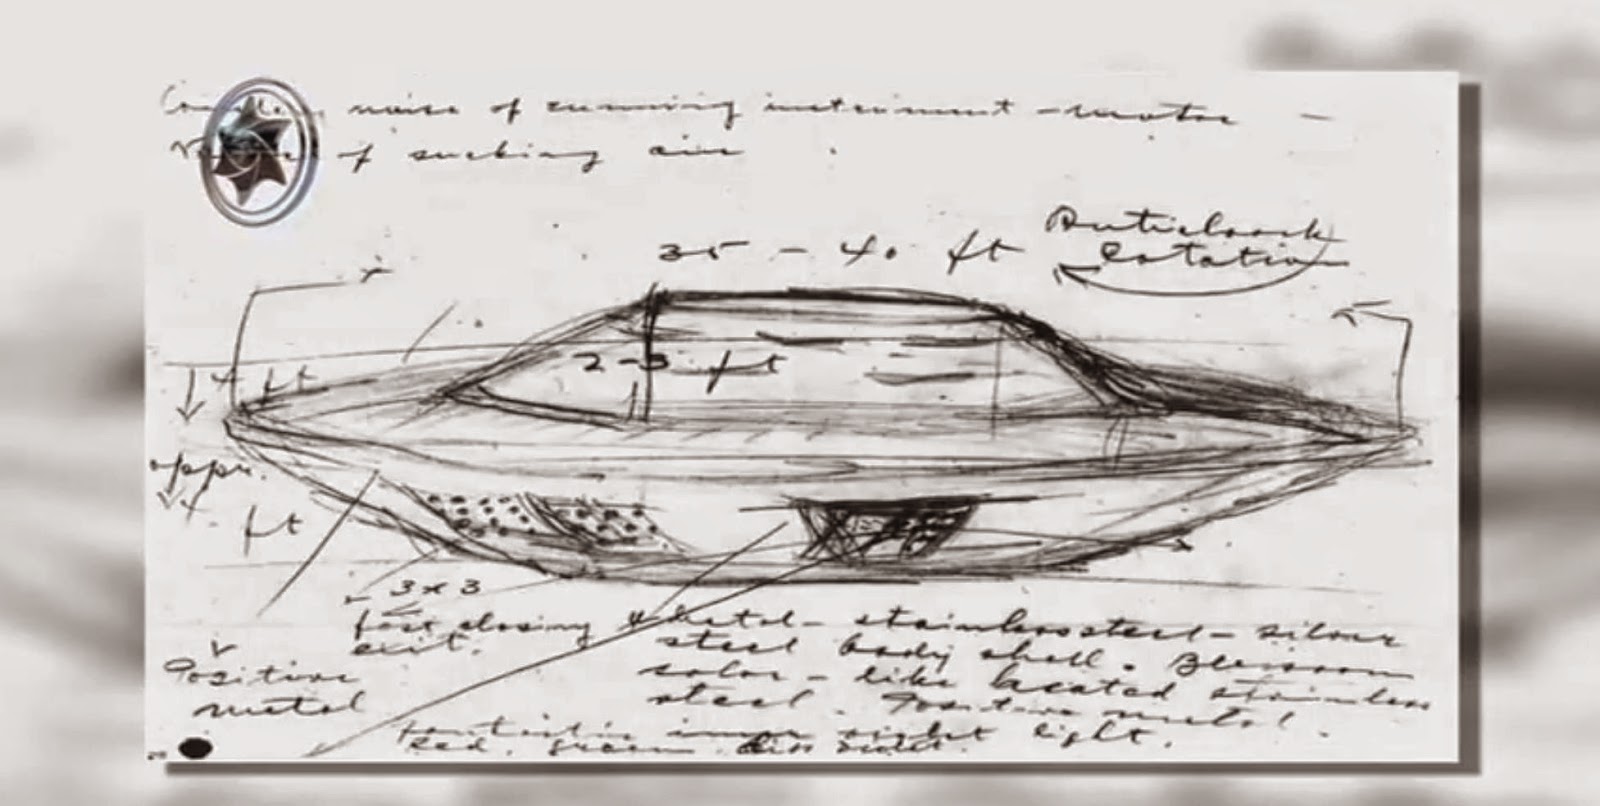 noise of running instrument - motor -
of sucking air
35 - 40 ft
Anticlock
Rotation
2-3 ft
4 ft
appr.
ft
3x3
fast closing
exit.
Metal - stainless steel - silver
steel body shell.
color - like heated stainless
steel. Positive metal.
Positive
metal
inner light.
Red. green